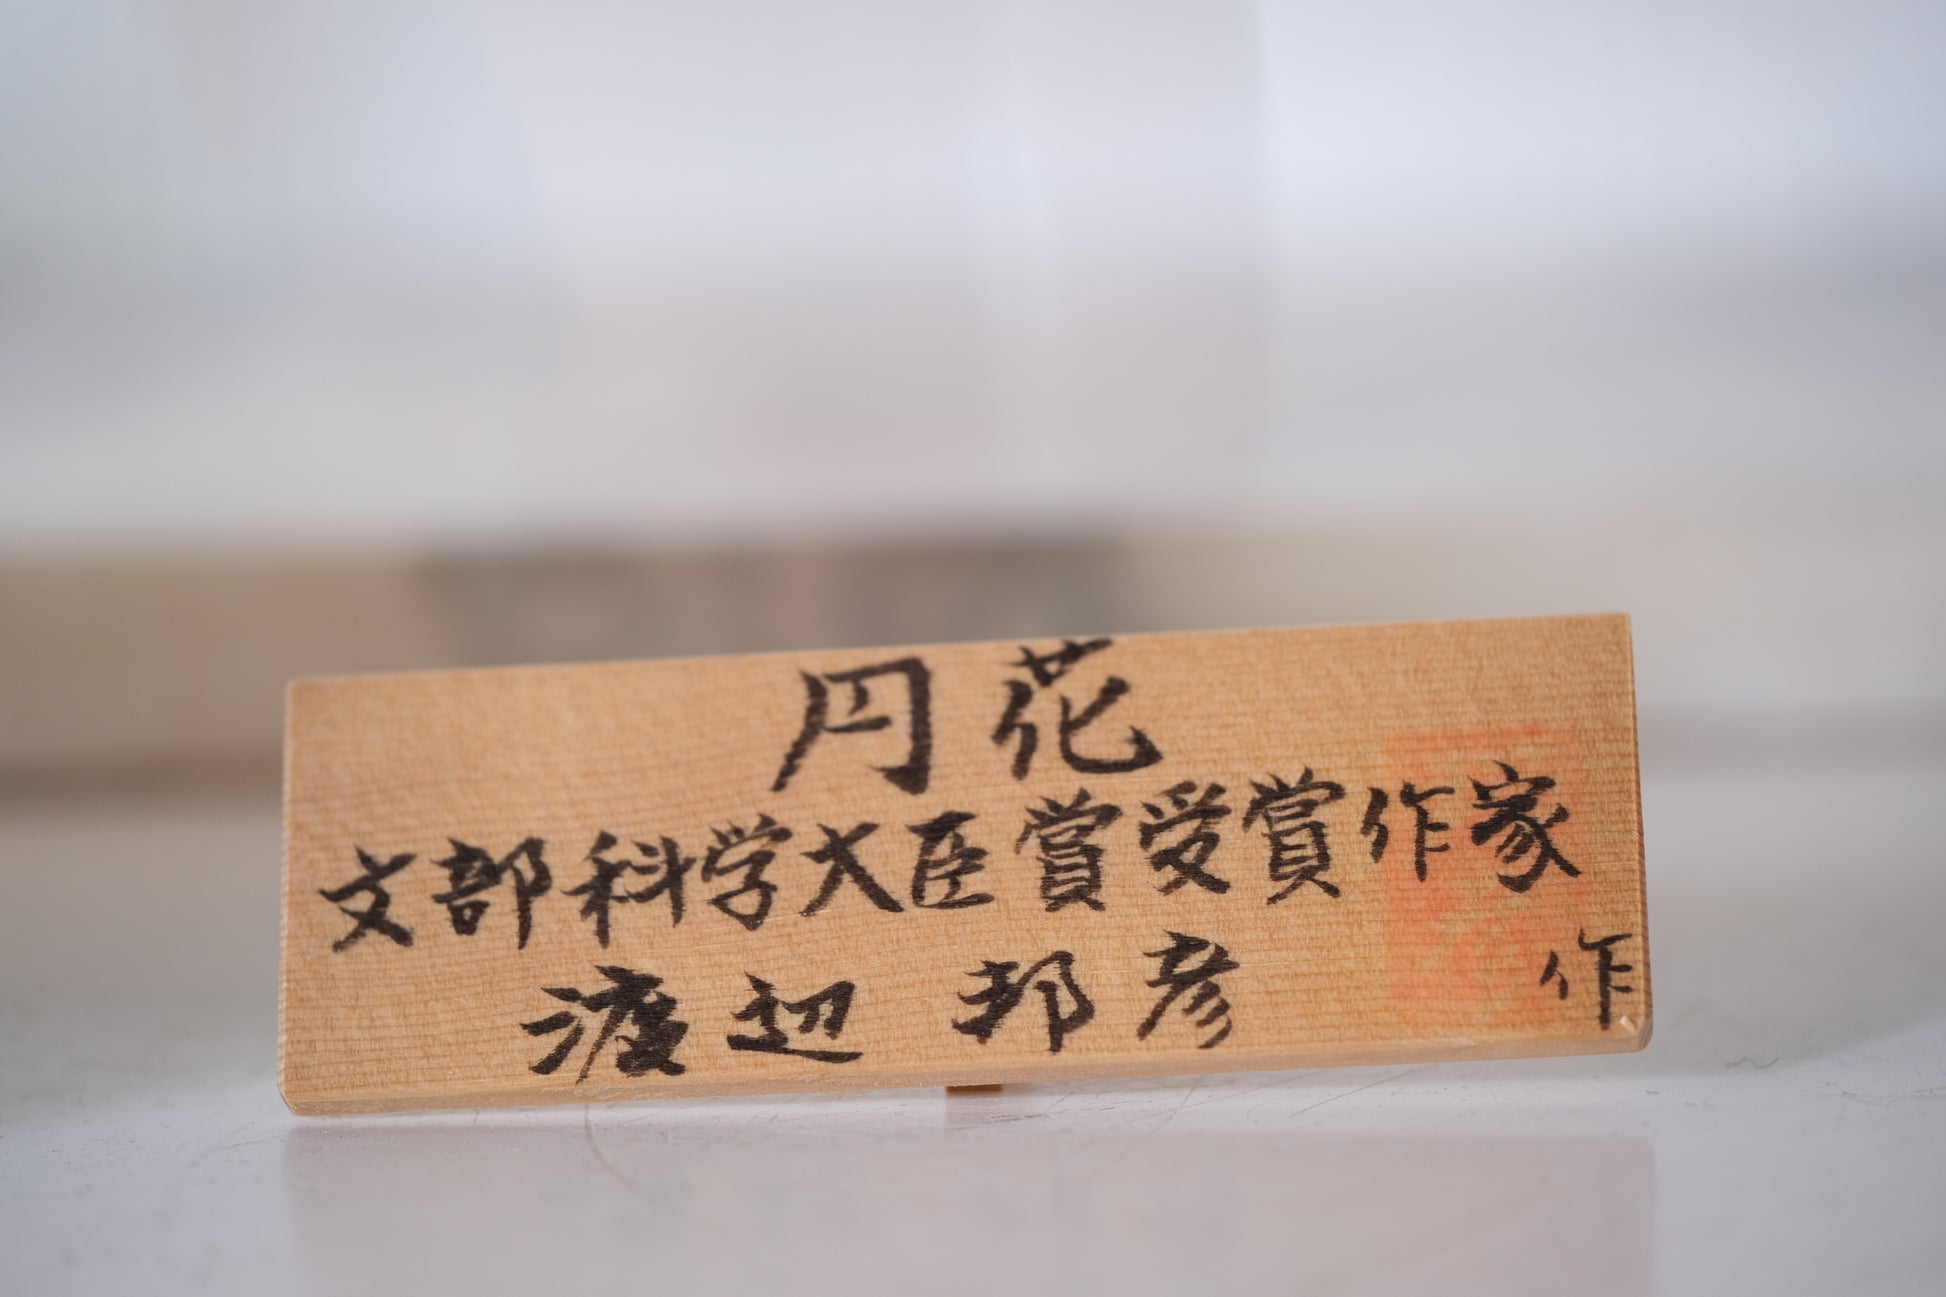 円花
文部科学大臣賞受賞作家
渡辺 邦彦 作